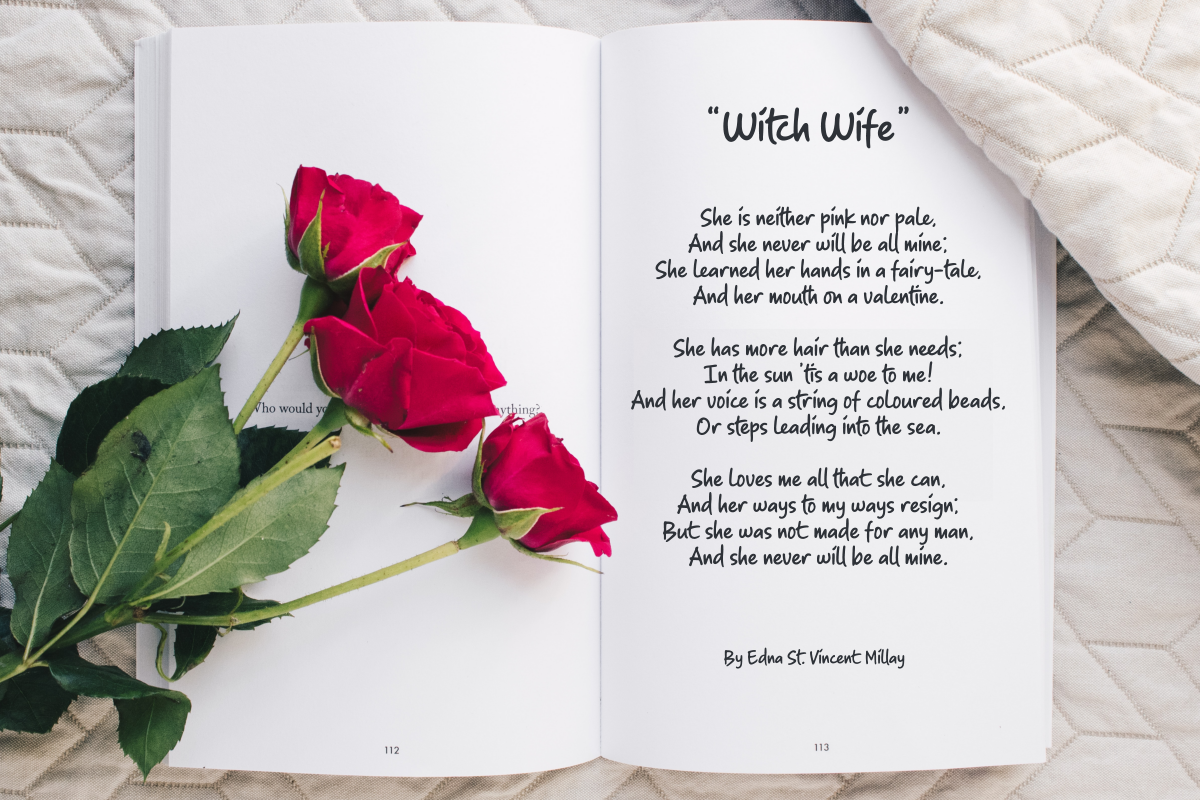 Who would
112
“Witch Wife”
She is neither pink nor pale,
And she never will be all mine;
She learned her hands in a fairy-tale,
And her mouth on a valentine.
She has more hair than she needs;
In the sun 'tis a woe to me!
And her voice is a string of coloured beads,
Or steps leading into the sea.
She loves me all that she can,
And her ways to my ways resign;
But she was not made for any man,
And she never will be all mine.
By Edna St. Vincent Millay
113